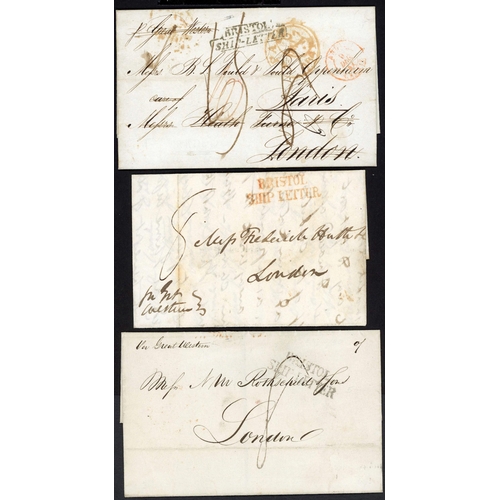 p Great Western
BRISTOL
SHIP-LETTER
Messrs B. L. Fould & Fould Oppenheim
Paris
care of
Messrs Heath Furse & Co
London.
BRISTOL
SHIP LETTER
8
Messrs Frederick Huth &
London
per Grt
Western
Per Great Western
BRISTOL
SHIP LETTER
Messrs N M Rothschild & Sons
8
London